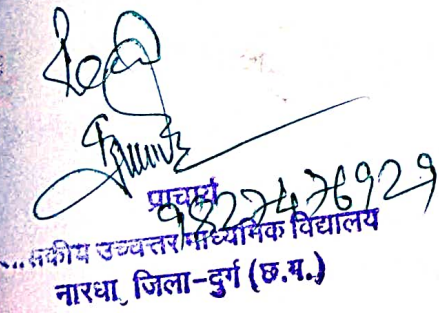 प्राचार्य
9827476929
...सकीय उच्चत्तर माध्यमिक विद्यालय
नारधा, जिला-दुर्ग (छ.ग.)